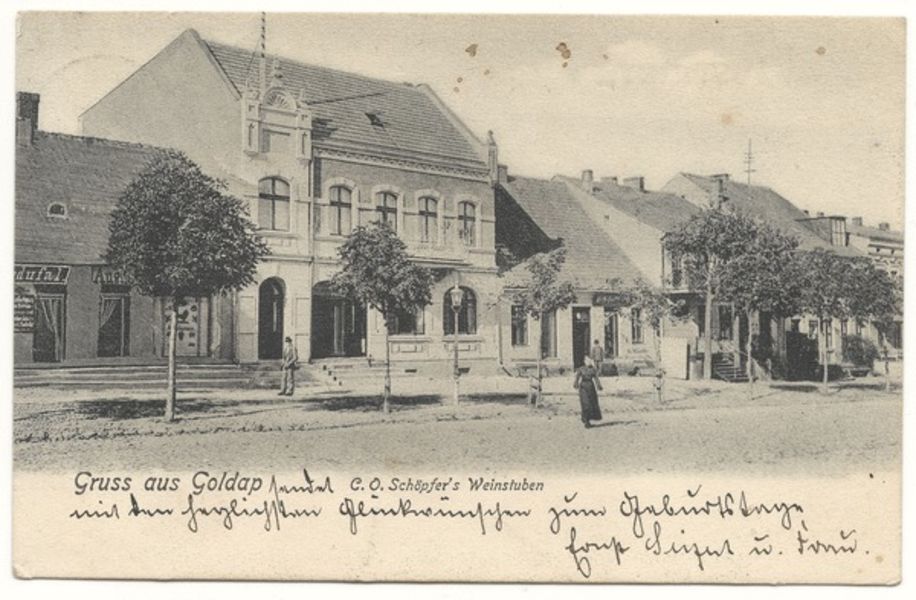 Gruss aus Goldap sendet C. O. Schöpfer's Weinstuben
mit den herzlichsten Glückwünschen zum Geburtstage
Ernst u. Frau.